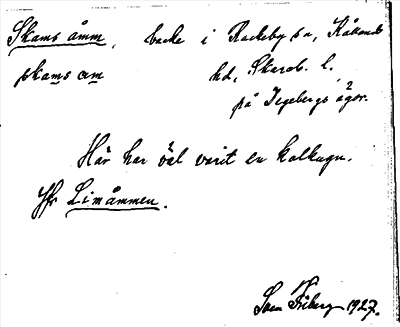 Skams åmm, backe i Rackeby sn, Kållands
skams am hd, Skarab. l.
på Tegebergs ägor.
Här har väl varit en kalkugn.
Jfr Limåmmen.
Sven Friberg 1927.